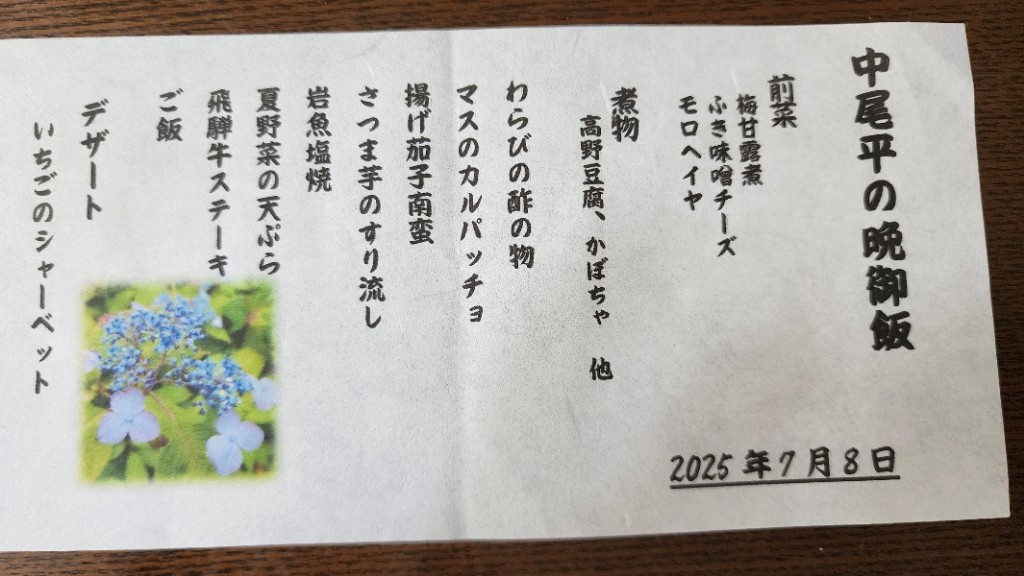 中尾平の晩御飯
前菜
梅甘露煮
ふき味噌チーズ
モロヘイヤ
煮物
高野豆腐、かぼちゃ　他
わらびの酢の物
マスのカルパッチョ
揚げ茄子南蛮
さつま芋のすり流し
岩魚塩焼
夏野菜の天ぷら
飛騨牛ステーキ
ご飯
デザート
いちごのシャーベット
2025年7月8日